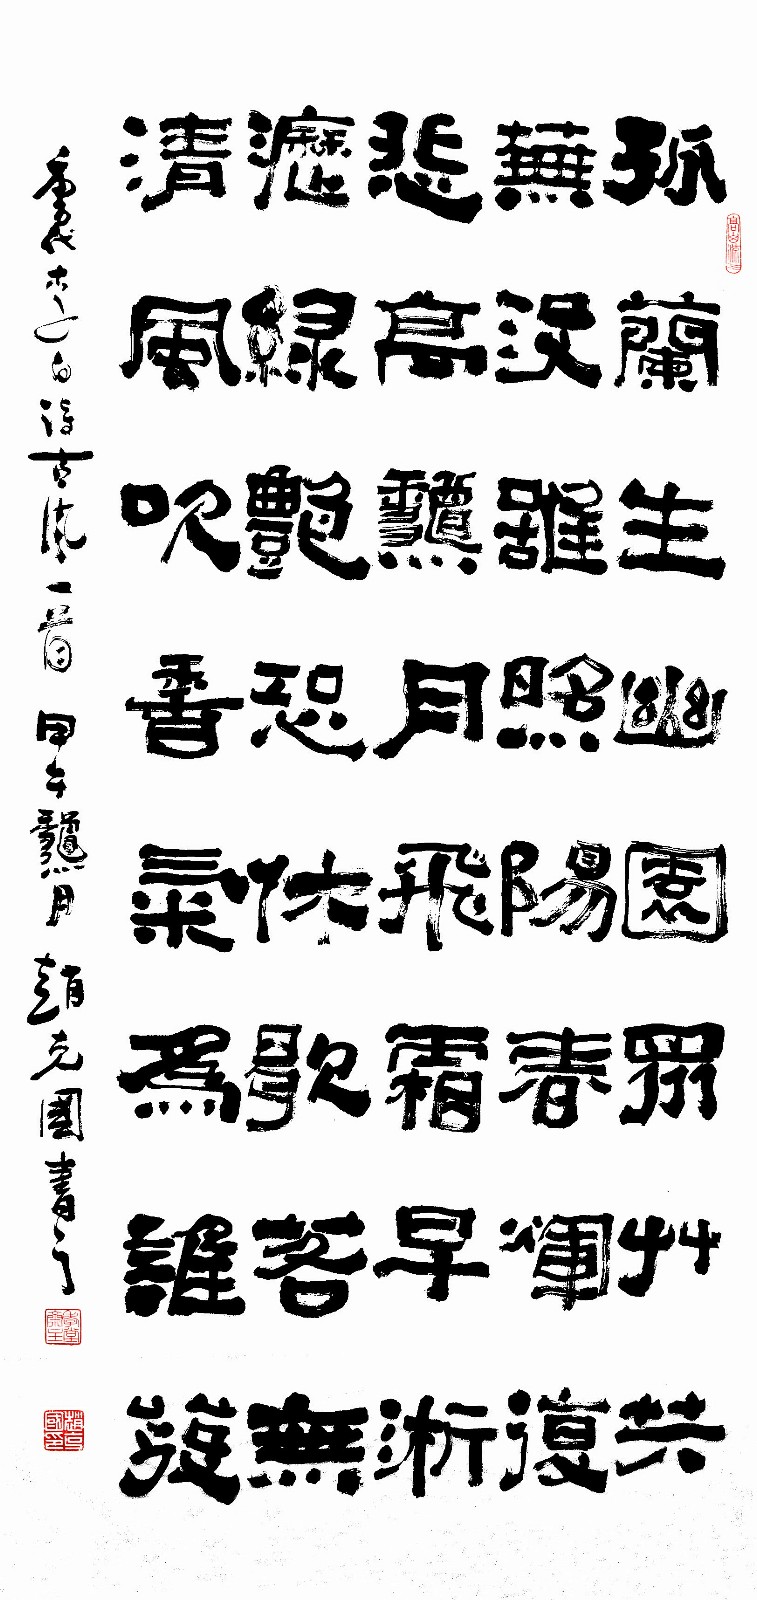 孤蘭生幽園眾艸共
蕪沒雖照陽春煇復
悲高龝月飛霜早淅
瀝綠艷恐休歇若無
清風吹香氣為誰發
唐代李白詩古風一首 甲午龝月 趙克國書